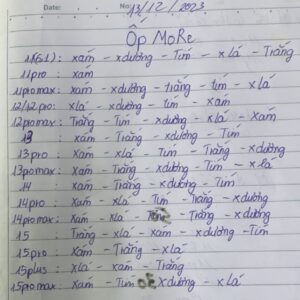 Date: No: 13/12/2023
Ốp MoRe
11(6.1): xám - xdương - Tím - xlá - Trắng
11pro: xám
11promax: xám - xdương - trắng - tím - xlá
12/12pro: xlá - xdương - tím - xám
12promax: Trắng - Tím - xdương - xlá - Xám
13: xám - Trắng - xdương - Tím
13pro: Xám - xlá - Tím - Trắng - xdương
13promax: Xám - xdương - Tím - xlá
14: xám - Trắng - xdương - Tím
14pro: Xám - xlá - Tím - Trắng - xdương
14promax: Xám - xlá - Trắng - xdương
15: Trắng - xlá - xám - xdương - Tím
15pro: Xám - Trắng - xlá
15plus: xlá - xám - Trắng
15promax: Xám - Tím xdương - xlá